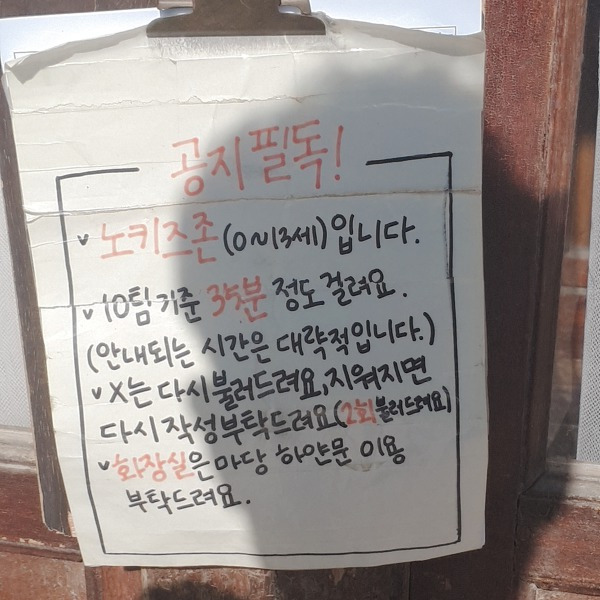 공지필독!
v 노키즈존(0~13세)입니다.
v 10팀기준 35분 정도 걸려요.
(안내되는 시간은 대략적입니다.)
v X는 다시불러드려요, 지워지면
다시 작성부탁드려요(2회불러드려요)
v 화장실은 마당 하얀문 이용
부탁드려요.